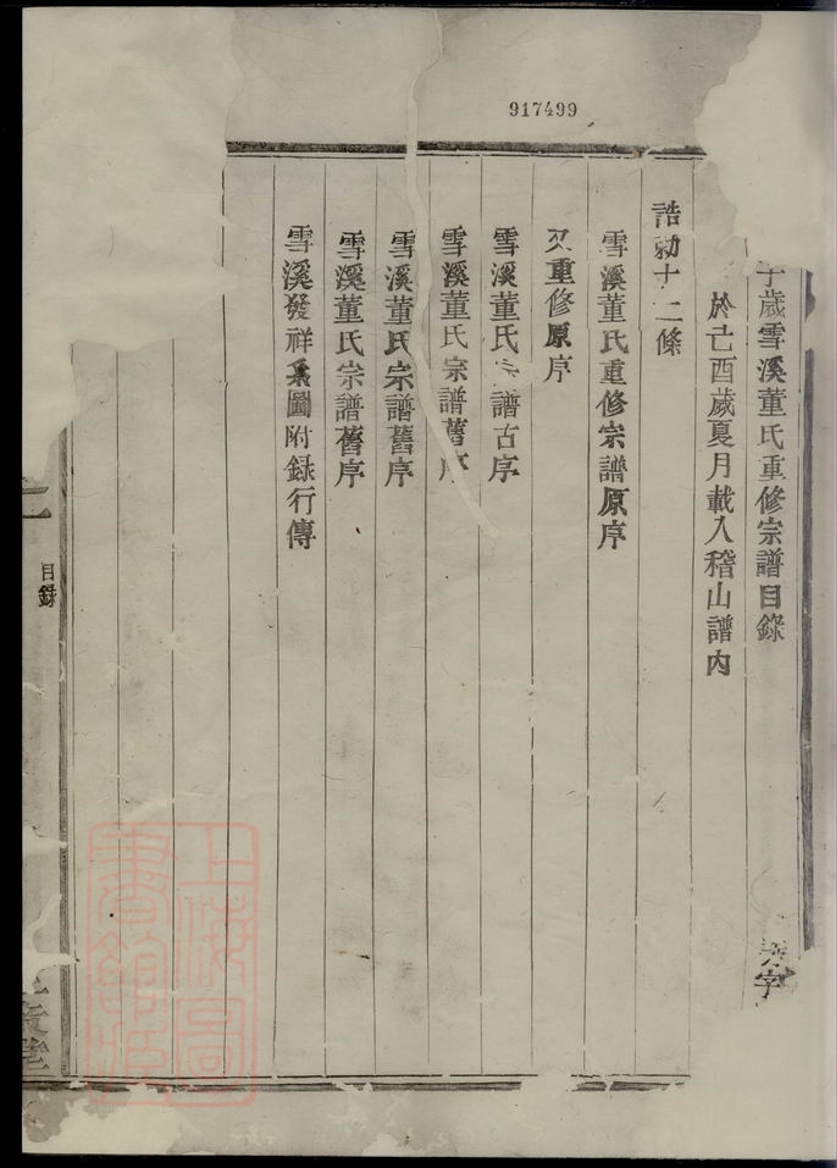 917499
子歲雪溪董氏重修宗譜目錄
於己酉歲夏月載入稽山譜內
誥勅十二條
雪溪董氏重修宗譜原序
又重修原序
雪溪董氏宗譜古序
雪溪董氏宗譜舊序
雪溪董氏宗譜舊序
雪溪董氏宗譜舊序
雪溪發祥系圖附錄行傳
字
目錄
堂
上海圖書館藏